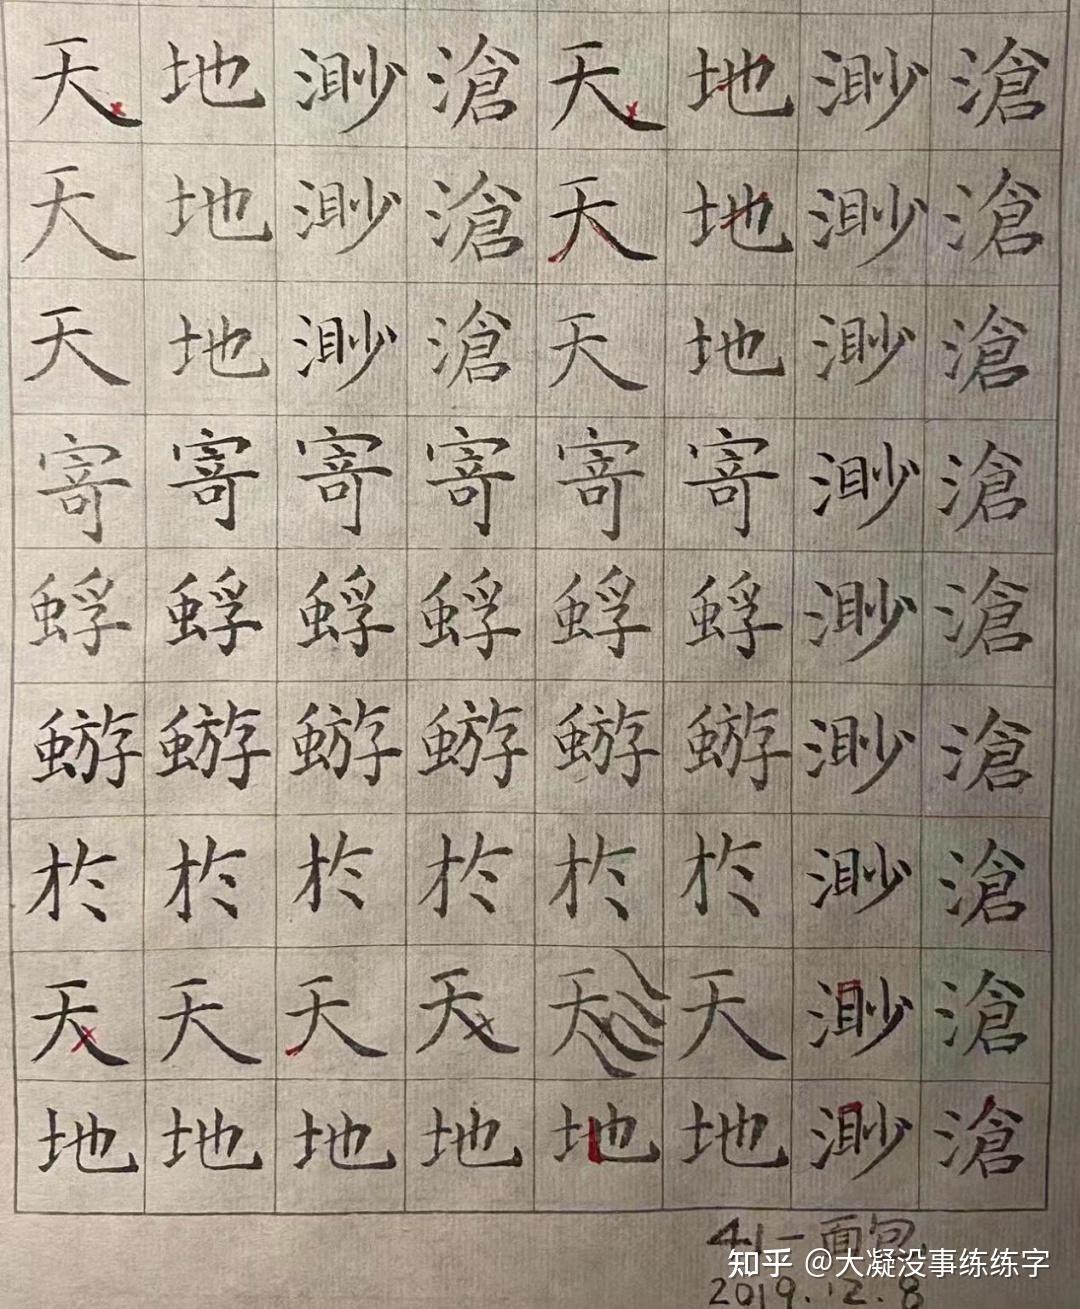 天地渺滄天地渺滄
天地渺滄天地渺滄
天地渺滄天地渺滄
寄寄寄寄寄寄渺滄
蜉蜉蜉蜉蜉蜉渺滄
蝣蝣蝣蝣蝣蝣渺滄
於於於於於於渺滄
天天天天天天渺滄
地地地地地地渺滄
41一面包.
知乎 @大凝没事练练字
2019.12.8